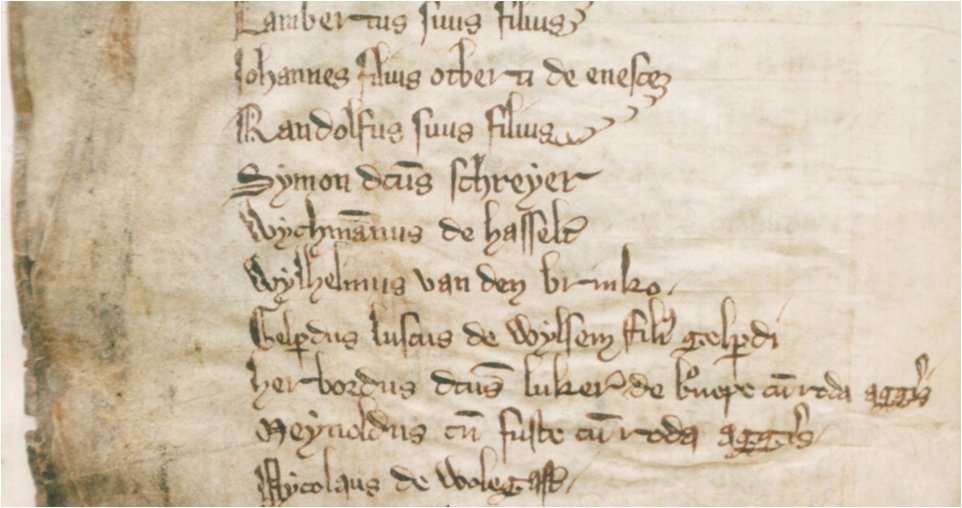 Lambertus suus filius
Johannes filius otberti de enesce
Randolfus suus filius
Symon dcūs schreyer
Wychmānus de hasselt
Wylhelmus van den brinko
Gelpdus luscus de wylsem fili gelpdi
herbordus dcūs luker de cū roda
Reynoldus cū fuste cū roda
Nycolaus de wolegast